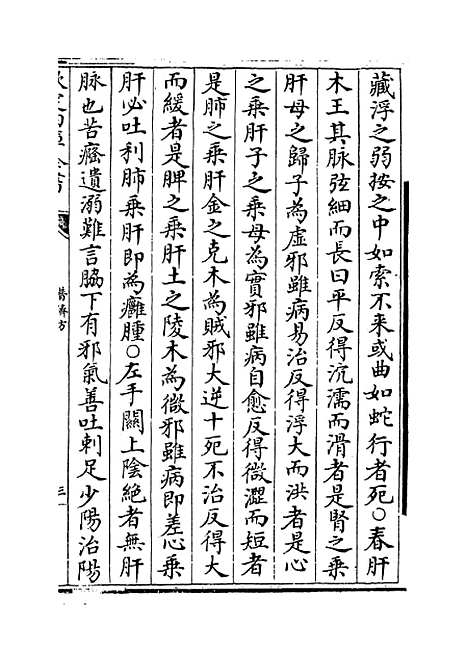 藏浮之弱按之中如索不来或曲如蛇行者死○春肝
木王其脉弦細而長曰平反得沉濡而滑者是腎之乗
肝母之歸子為虚邪雖病易治反得浮大而洪者是心
之乗肝子之乗母為實邪雖病自愈反得微澀而短者
是肺之乗肝金之克木為賊邪大逆十死不治反得大
而緩者是脾之乗肝土之陵木為微邪雖病即差心乗
肝必吐利肺乗肝即為癰腫○左手關上陰絶者無肝
脉也苦癃遺溺難言脇下有邪氣善吐刺足少陽治陽
普濟方